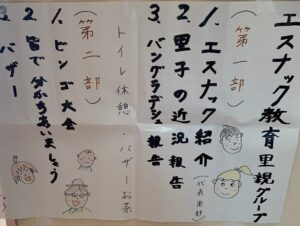 エスナック教育里親グループ
(第一部)
1. エスナック紹介
(代表東部)
2. 里子の近況報告
3. バングラデシュ報告
トイレ休憩・バザーお茶
(第二部)
1. ビンゴ大会
2. 皆で分かち合いましょう
3. バザー